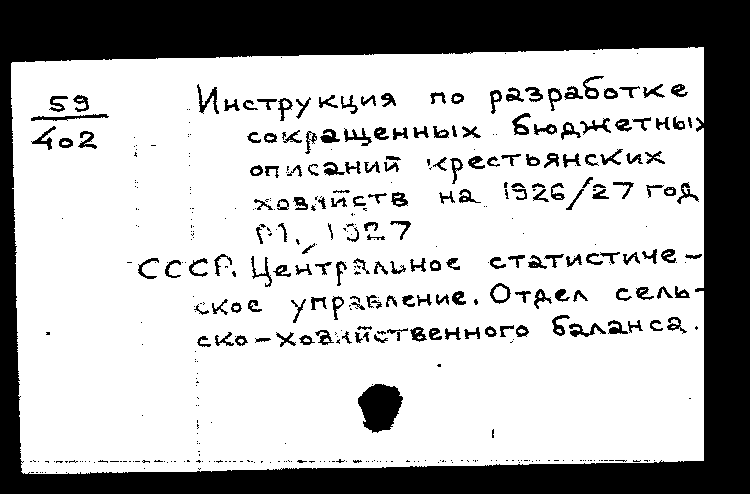 59
402
Инструкция по разработке
сокращенных бюджетных
описаний крестьянских
хозяйств на 1926/27 год
М., 1927
СССР. Центральное статистиче-
ское управление. Отдел сель-
ско-хозяйственного баланса.